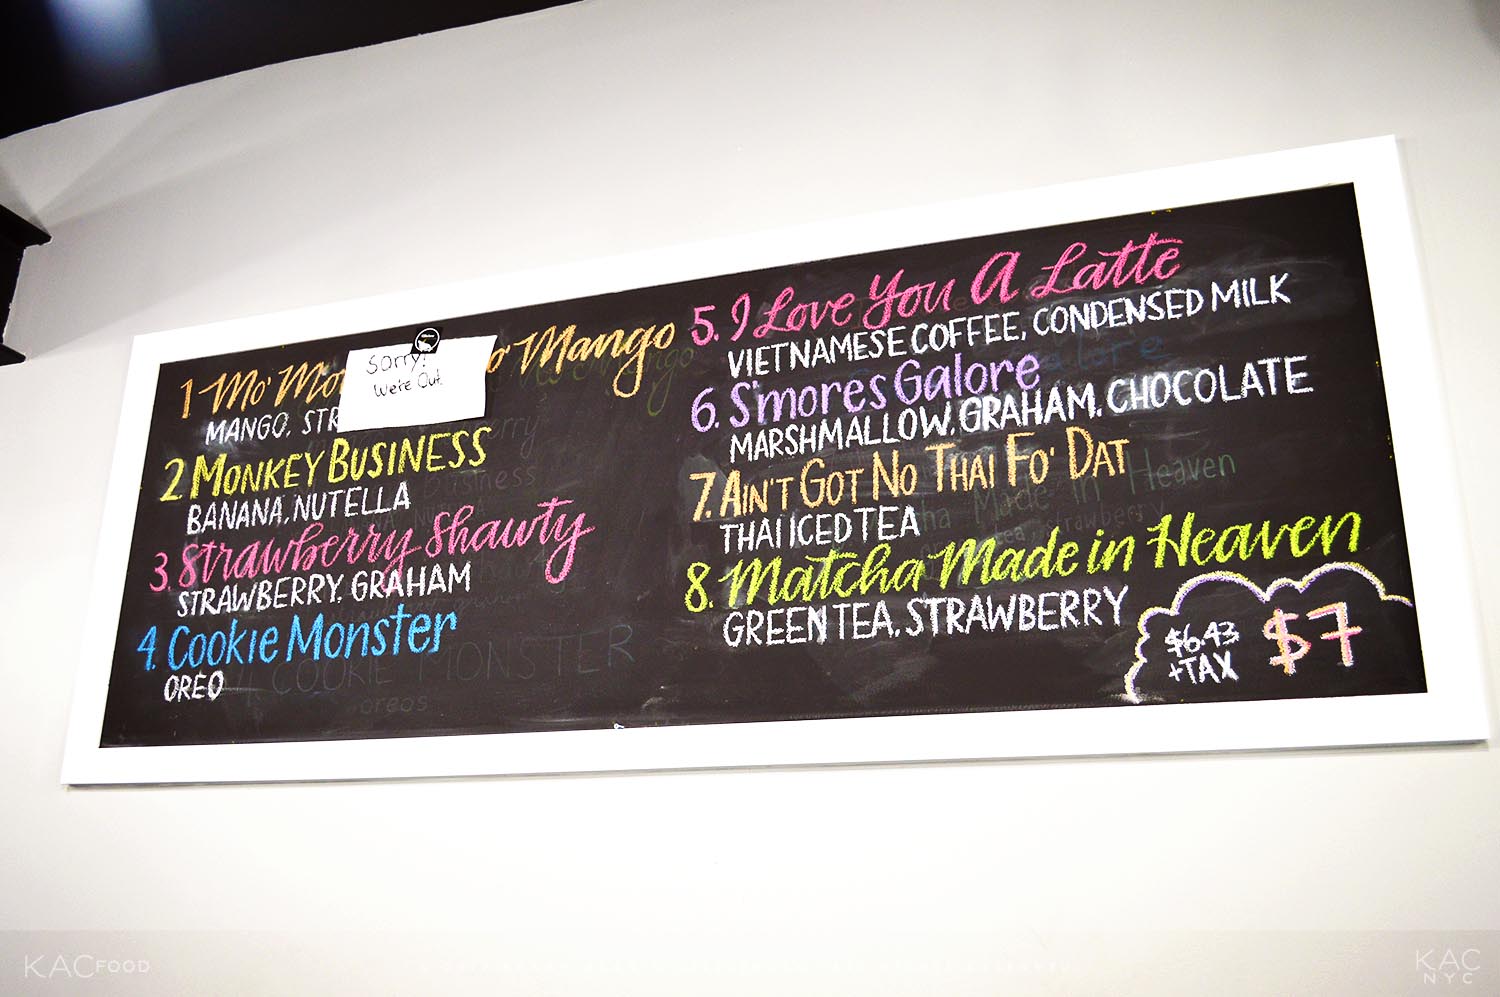 1 Mo' Mo o' Mango
MANGO, STR
Sorry!
We're Out.
2 MONKEY BUSINESS
BANANA, NUTELLA
3. Strawberry Shawty
STRAWBERRY, GRAHAM
4. Cookie Monster
OREO
5. I Love You A Latte
VIETNAMESE COFFEE, CONDENSED MILK
6. S'mores Galore
MARSHMALLOW, GRAHAM, CHOCOLATE
7. AIN'T GOT NO THAI FO' DAT
THAI ICED TEA
8. Matcha Made in Heaven
GREEN TEA, STRAWBERRY
$6.43
+TAX
$7
COOKIE MONSTER
oreos
KAC FOOD
KAC
NYC